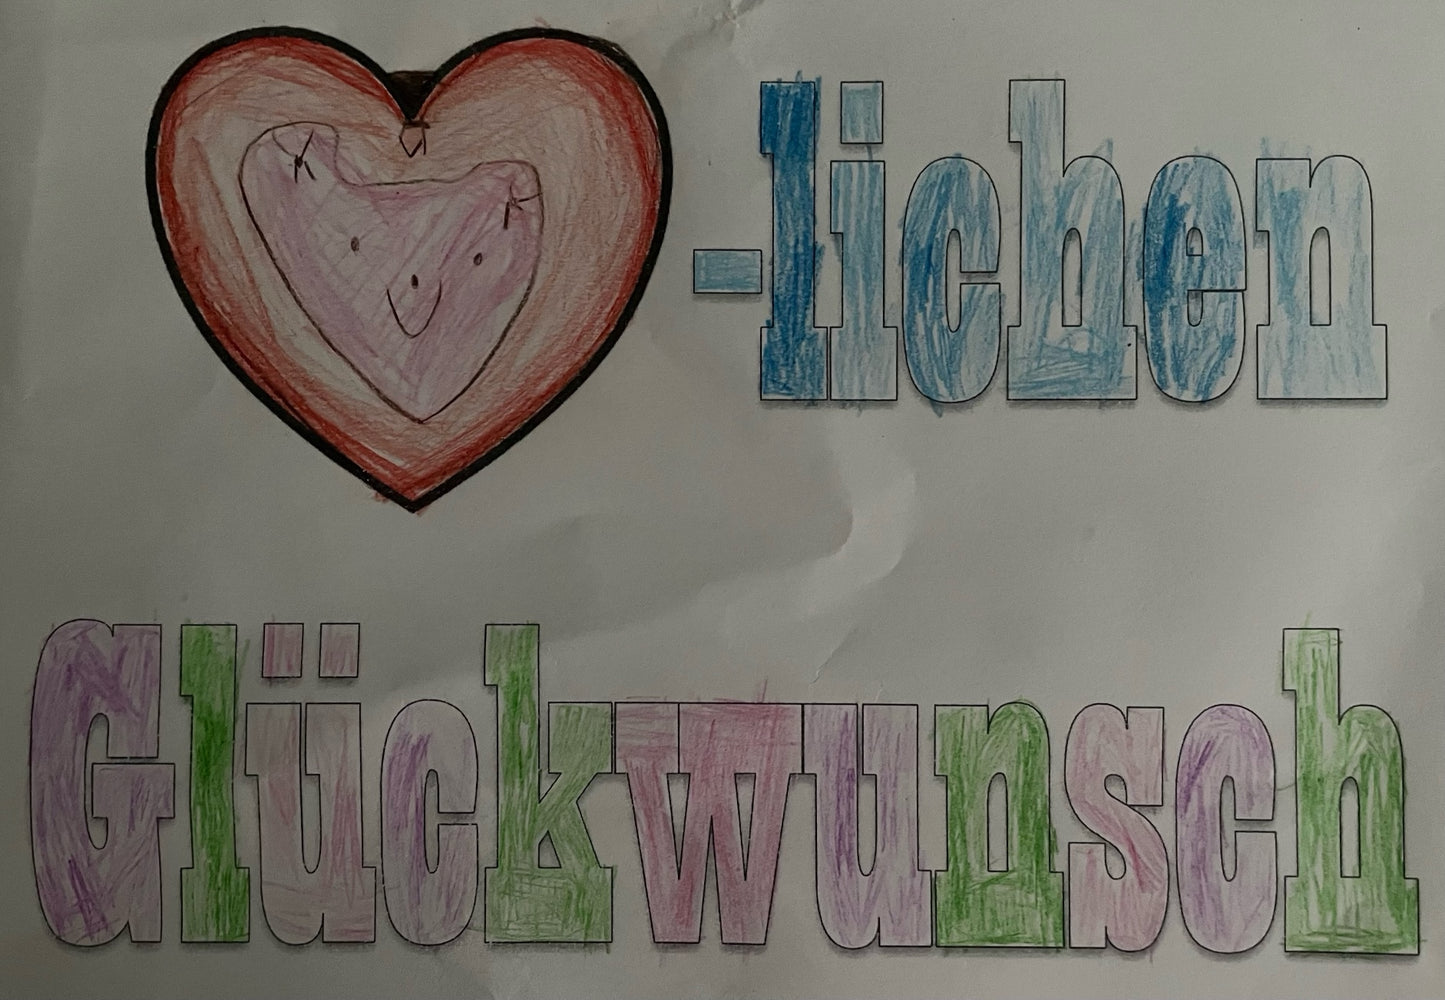 -lichen
Glückwunsch